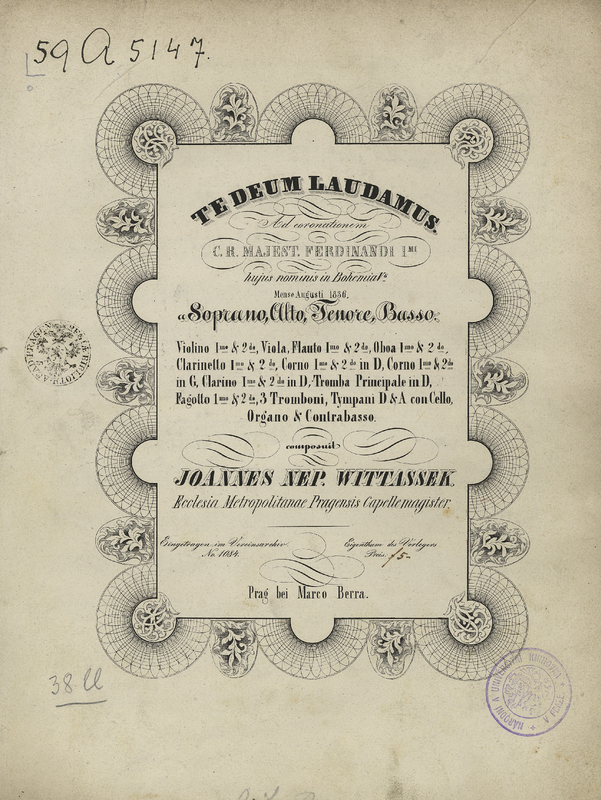 59 A 5147.
TE DEUM LAUDAMUS.
Ad coronationem
C. R. MAJEST. FERDINANDI I.MI
hujus nominis in Bohemia V.ti
Mense Augusti 1836.
a Soprano, Alto, Tenore, Basso.
Violino 1mo & 2do, Viola, Flauto 1mo & 2do, Oboa 1mo & 2do,
Clarinetto 1mo & 2do, Corno 1mo & 2do in D, Corno 1mo & 2do
in G, Clarino 1mo & 2do in D, Tromba Principale in D,
Fagotto 1mo & 2do, 3 Tromboni, Tympani D & A con Cello,
Organo & Contrabasso.
composuit
JOANNES NEP. WITTASSEK.
Ecclesia Metropolitanae Pragensis Capellemagister.
Eingetragen im Vereinsarchiv Eigenthum des Verlegers
No. 1084. Preis. f5-
Prag bei Marco Berra.
38
NÁRODNÍ A UNIVERSITNÍ KNIHOVNA V PRAZE